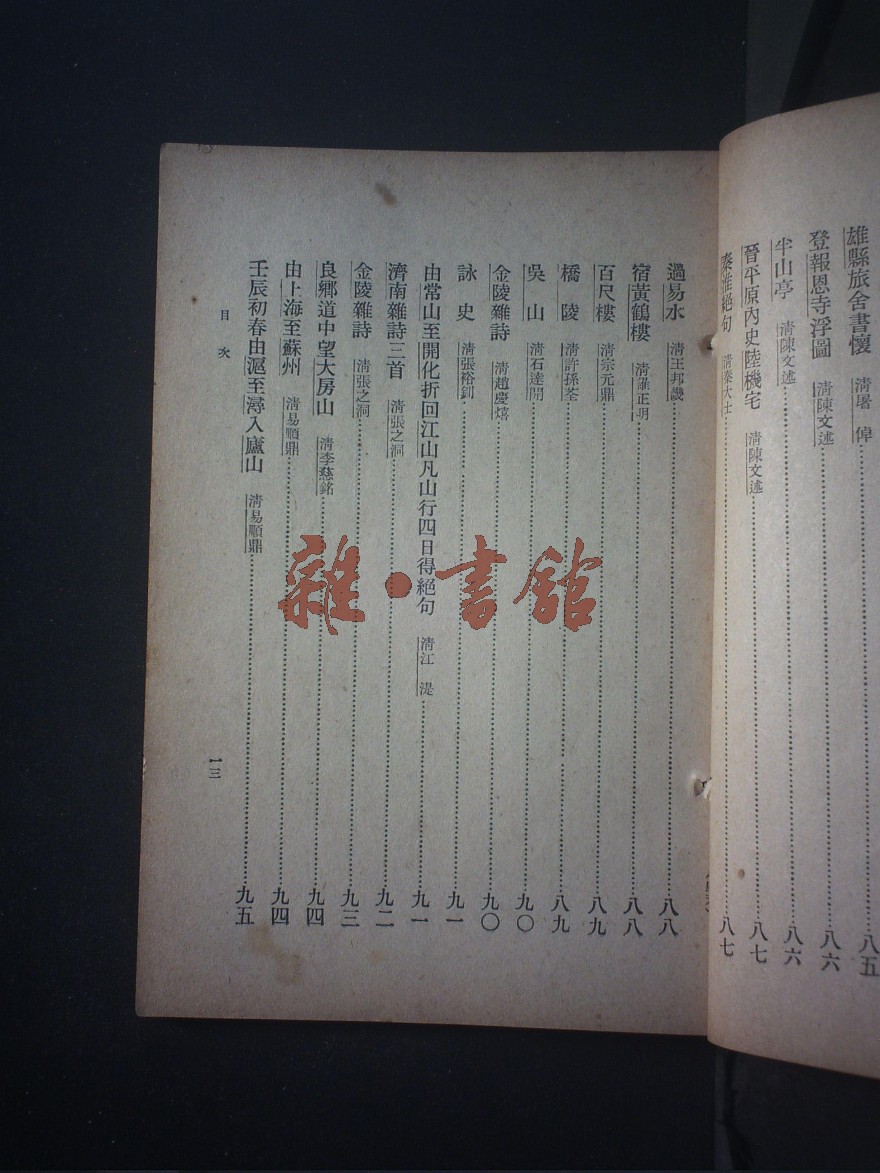 雄縣旅舍書懷 清屠 倬……八五
登報恩寺浮圖 清陳文述……八六
半山亭 清陳文述……八六
晉平原內史陸機宅 清陳文述……八七
秦淮絕句 清秦大士……八七
過易水 清王邦畿……八八
宿黃鶴樓 清 正明……八八
百尺樓 清宗元鼎……八九
橋 陵 清許孫荃……八九
吳 山 清石達開……九〇
金陵雜詩 清趙慶熺……九〇
詠 史 清張裕釗……九一
由常山至開化折回江山凡山行四日得絕句 清江 湜……九一
濟南雜詩三首 清張之洞……九二
金陵雜詩 清張之洞……九三
良鄉道中望大房山 清李慈銘……九四
由上海至蘇州 清易順鼎……九四
壬辰初春由滬至潯入廬山 清易順鼎……九五
目次
一三
雜·書館